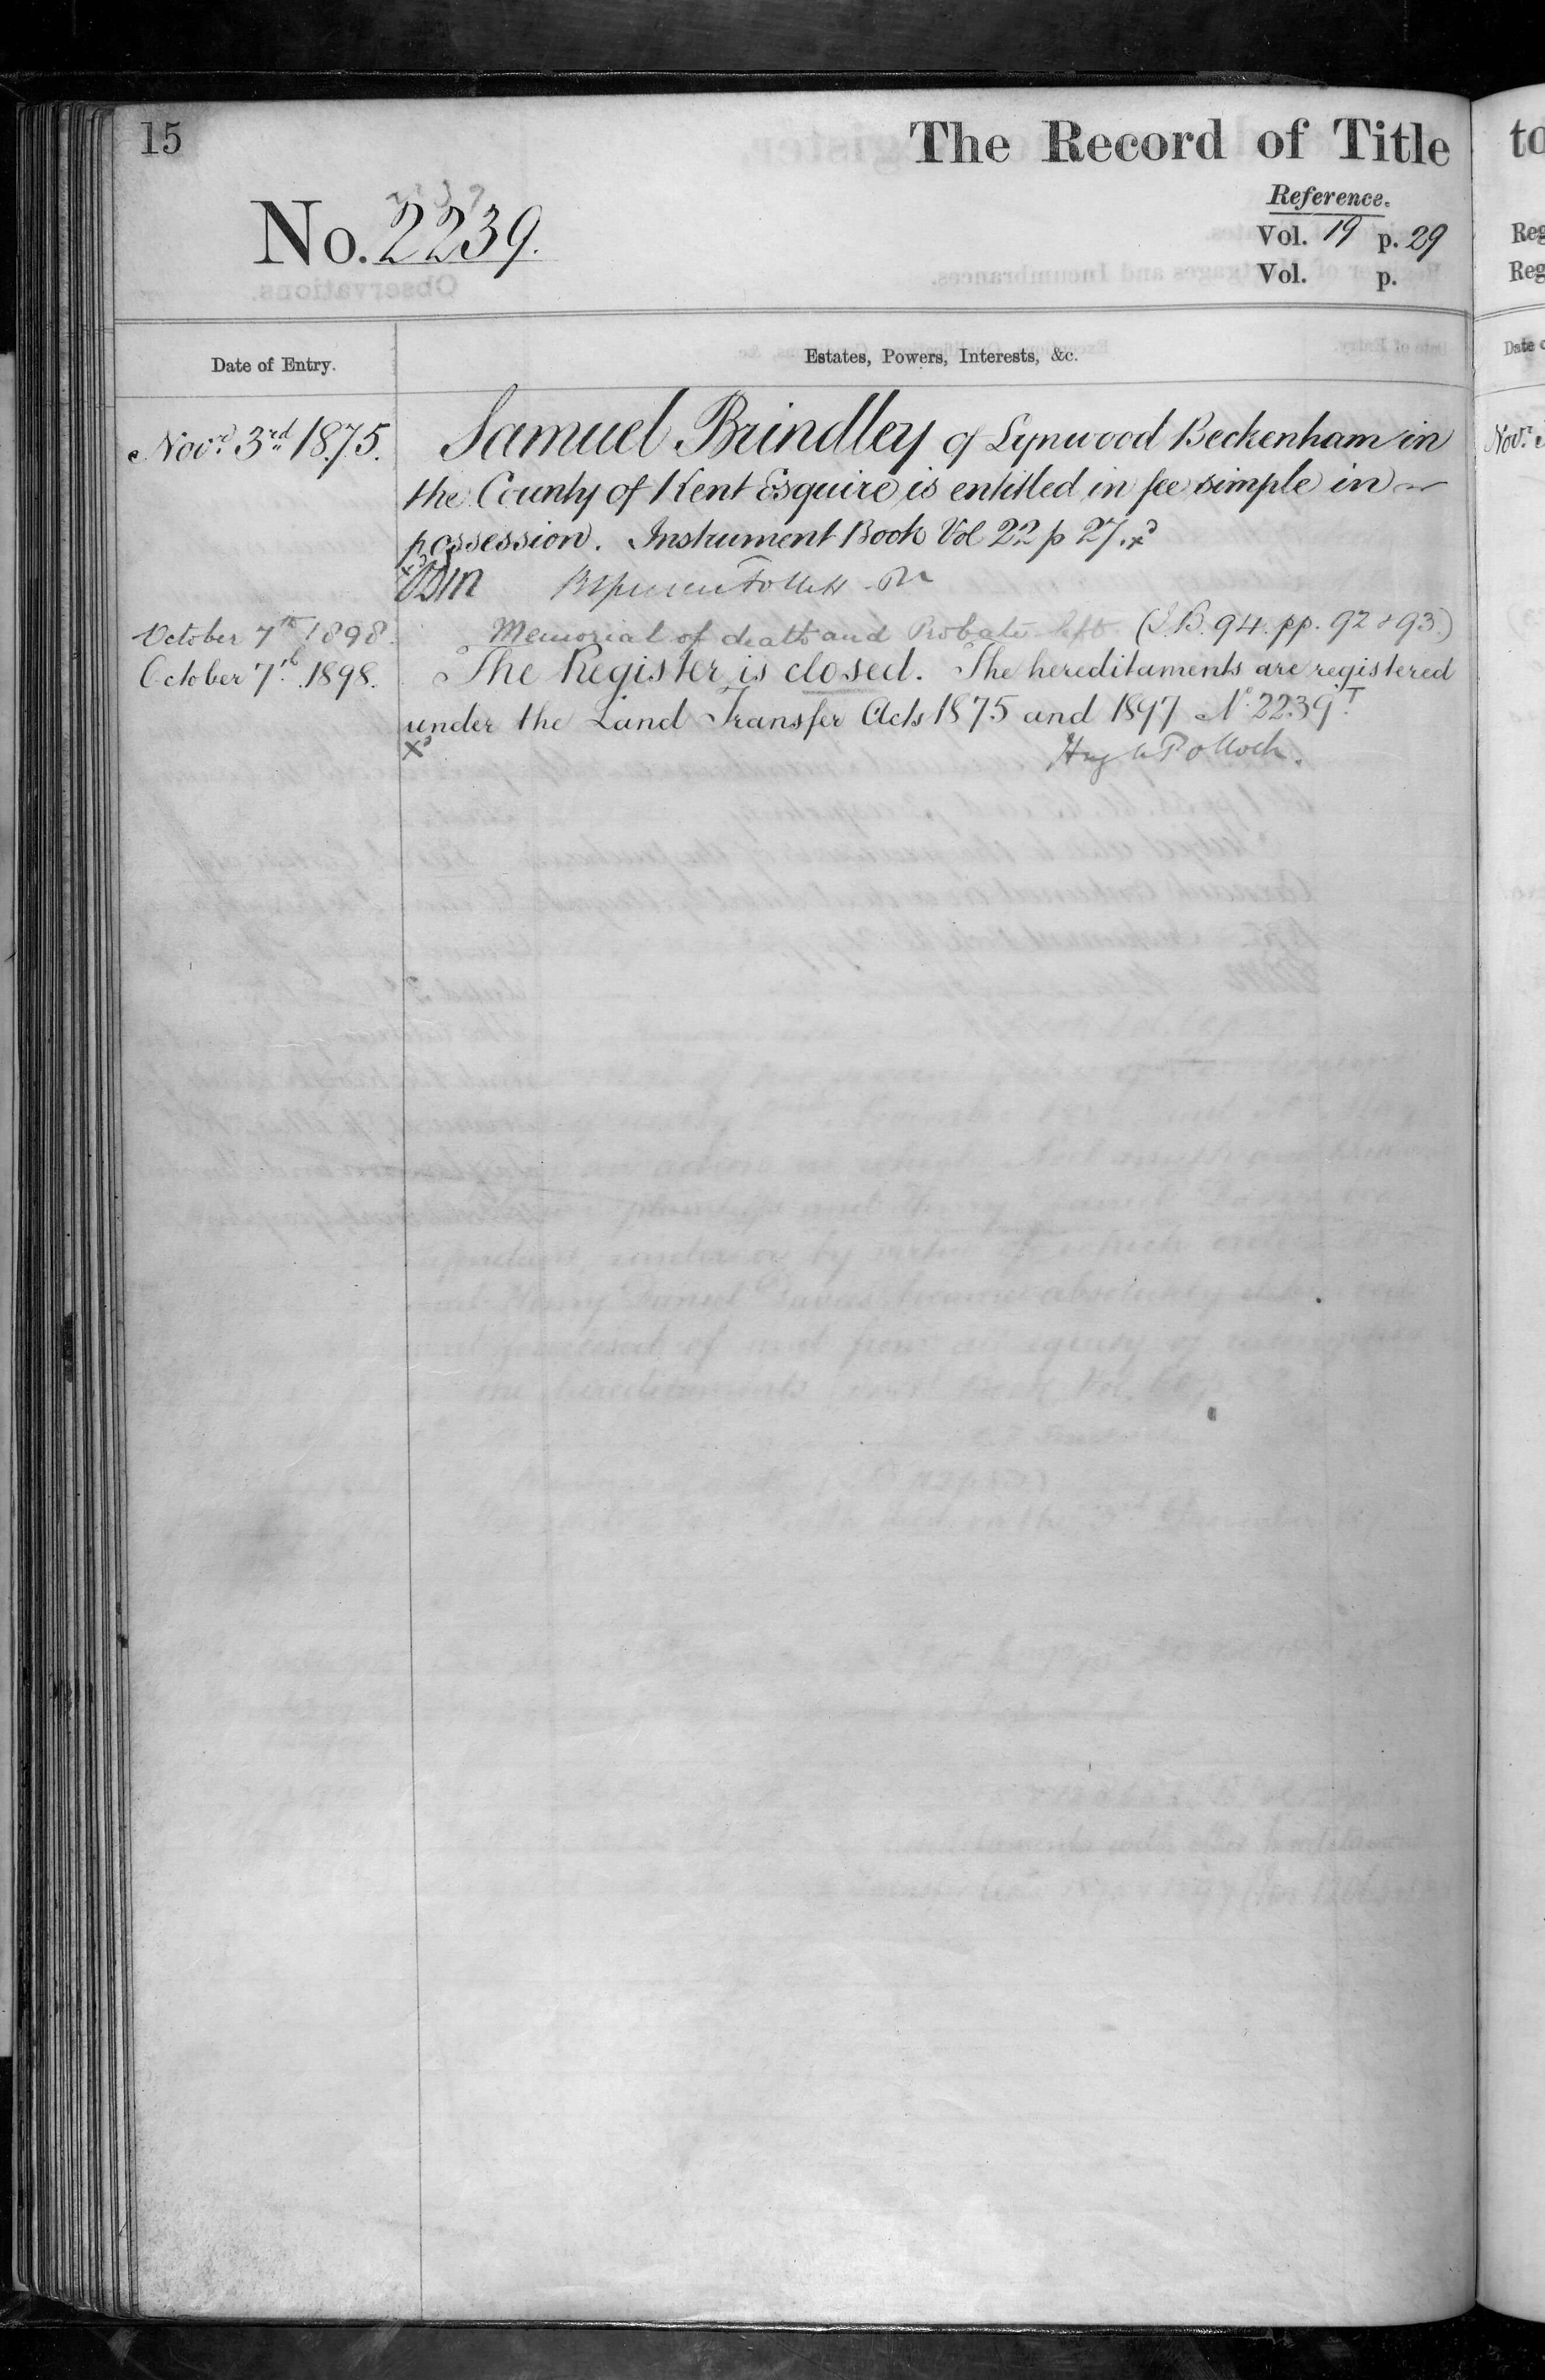 15
The Record of Title
Reference.
No. 2239.
Vol. 19 p. 29
Vol. p.
Date of Entry.
Estates, Powers, Interests, &c.
Novr. 3rd 1875.
Samuel Brindley of Lynwood Beckenham in
the County of Kent Esquire is entitled in fee simple in
possession. Instrument Book Vol 22 p 27.
October 7th 1898.
Memorial of death and Probate left. (I.B. 94. pp. 92 & 93.)
October 7th 1898.
The Register is closed. The hereditaments are registered
under the Land Transfer Acts 1875 and 1897 No. 2239T.
Hugh Pollock.
to
Reg
Reg
Date o
Novr.